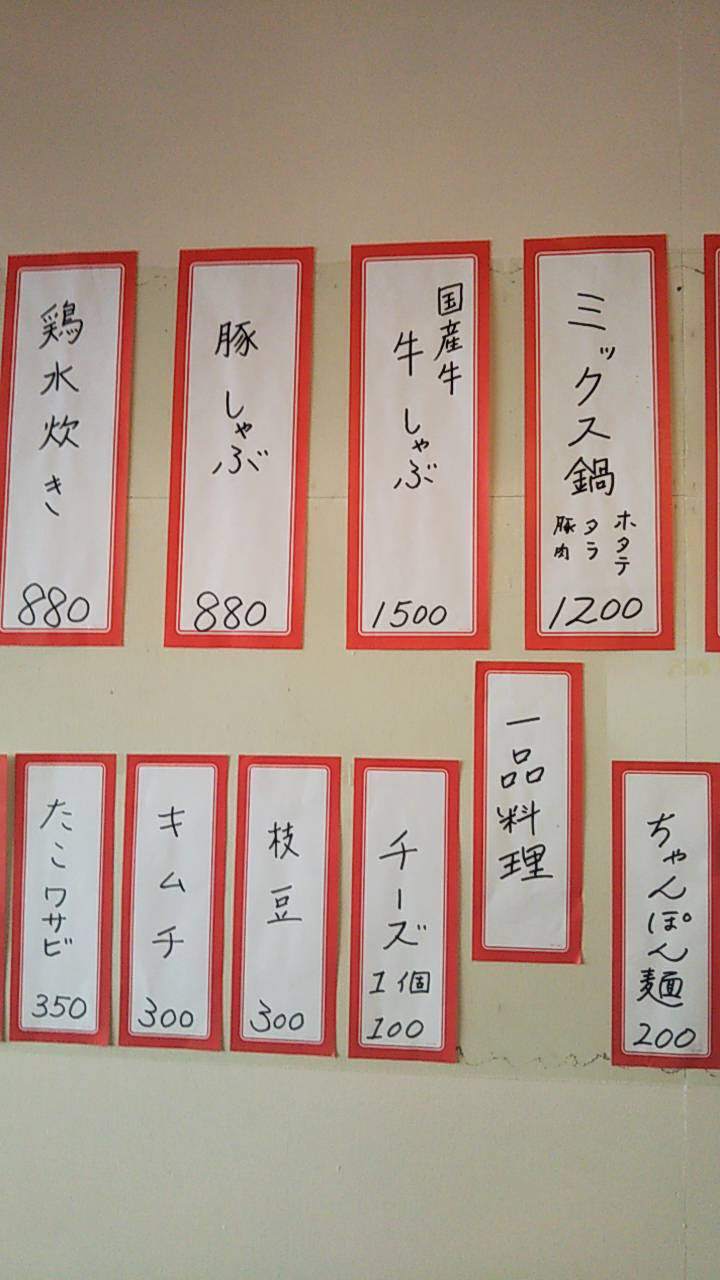 ミックス鍋
ホタテ
タラ
豚肉
1200
国産牛
牛しゃぶ
1500
豚しゃぶ
880
鶏水炊き
880
ちゃんぽん麺
200
一品料理
チーズ
1個
100
枝豆
300
キムチ
300
たこワサビ
350